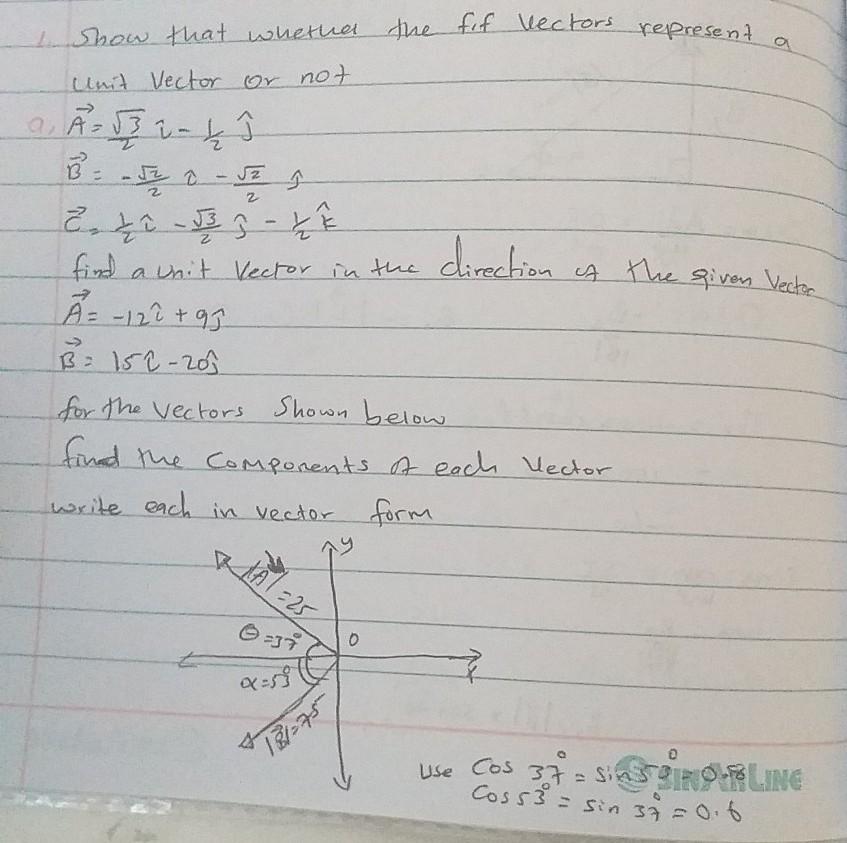 1. Show that whether the f.f Vectors represent a
Unit Vector or not
a, A⃗ = √3/2 î - 1/2 ĵ
B⃗ = -√2/2 î - √2/2 ĵ
C⃗ = 1/2 î - √3/2 ĵ - 1/2 k̂
find a unit Vector in the direction of the given Vector
A⃗ = -12î + 9ĵ
B⃗ = 15î - 20ĵ
for the vectors Shown below
find the Components of each Vector
write each in vector form
y
|A⃗| = 25
θ = 37° 0
x
α = 53°
|B⃗| = 75
Use Cos 37° = sin 53° = 0.8
SINARLINE
Cos 53° = sin 37° = 0.6